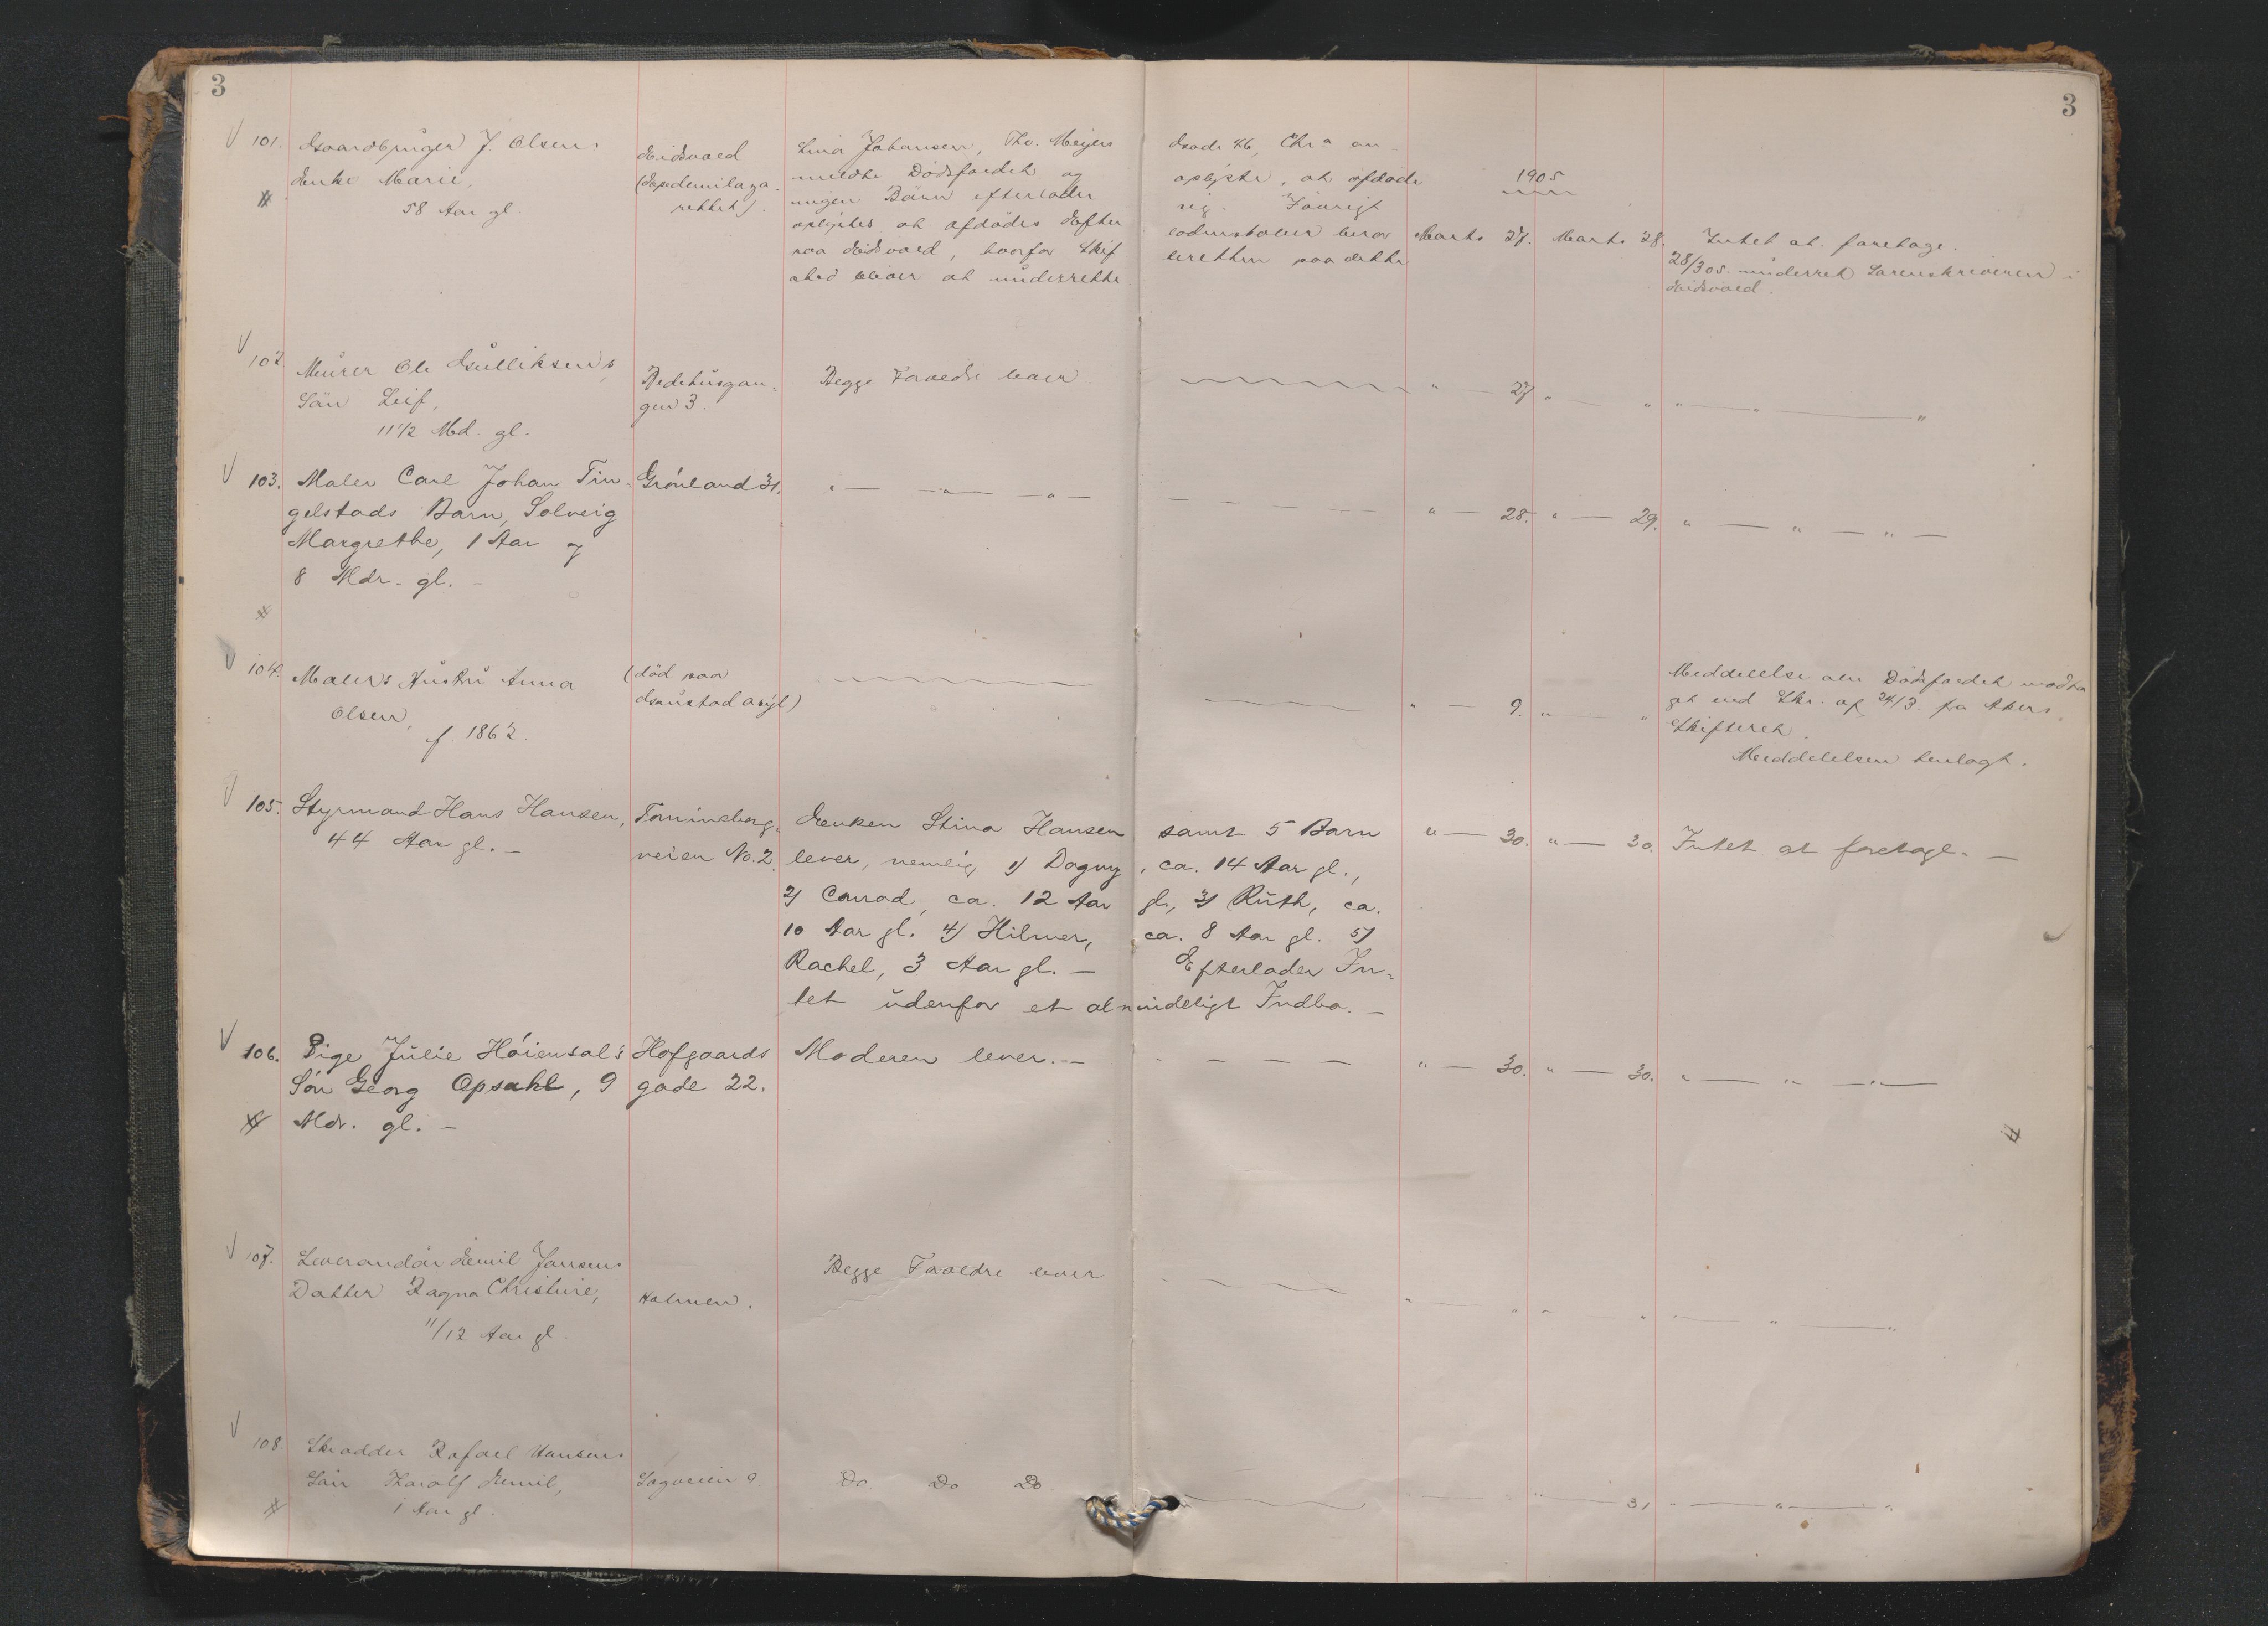 3
3
101. Gaardbruger J. Olsens
Enke Marie,
58 Aar gl.
Eidsvold
(Epedemilaza-
rettet).
Lina Johansen, Thv. Meijers Gade 46, Chra an-
meldte Dødsfaldet og oplyste, at afdøde
ingen Børn efterlader sig. Iøvrigt
oplystes at afdødes Efterladenskaber beror
paa Eidsvold, hvorfor Skifteretten paa dette
sted bliver at underrette.
1905
Marts 27. Marts 28. Intet at foretage.
28/3 05. underret. Sorenskriveren i
Eidsvold.
102. Murer Ole Gulliksens
Søn Leif,
11 1/2 Md. gl.
Bedehusgan-
gen 3.
Begge Forældre lever
" — 27 " — " " — " — "
103. Maler Carl Johan Tin-
gelstads Barn, Solveig
Margrethe, 1 Aar og
8 Mdr. gl. —
Grönland 31.
" — " — " —
" — 28. " — 29. " — " — " —
104. Malers Hustru Anna
Olsen,
f. 1862.
(död paa
Gaustad asyl)
" — 9. " — "
Meddelelse om Dødsfaldet modta-
get ved Skr. af 24/3. fra Akers
Skifteret.
Meddelelsen henlagt.
105. Styrmand Hans Hansen,
44 Aar gl. —
Tømineborg-
veien No. 2.
Enken Stina Hansen samt 5 Barn
lever, nemlig 1) Dagny, ca. 14 Aar gl.,
2) Conrad, ca. 12 Aar gl., 3) Ruth, ca.
10 Aar gl. 4) Hilmer, ca. 8 Aar gl. 5)
Rachel, 3 Aar gl. — Efterlader In-
tet udenfor et almindeligt Indbo. —
" — 30. " — 30. Intet at foretage. —
106. Pige Julie Höiensals
Sön Georg Opsahl, 9
Mdr. gl. —
Hofgaards
gade 22.
Moderen lever. —
" — 30. " — 30. " — " — " —
107. Leverandör Emil Jansens
Datter Ragna Christine,
11/12 Aar gl.
Holmen.
Begge Forældre lever
" — " " — " " — " — "
108. Skrædder Rafael Hansens
Sön Tharolf Emil,
1 Aar gl.
Sagveien 9.
Do. Do Do.
— " " — 31 " — " — "